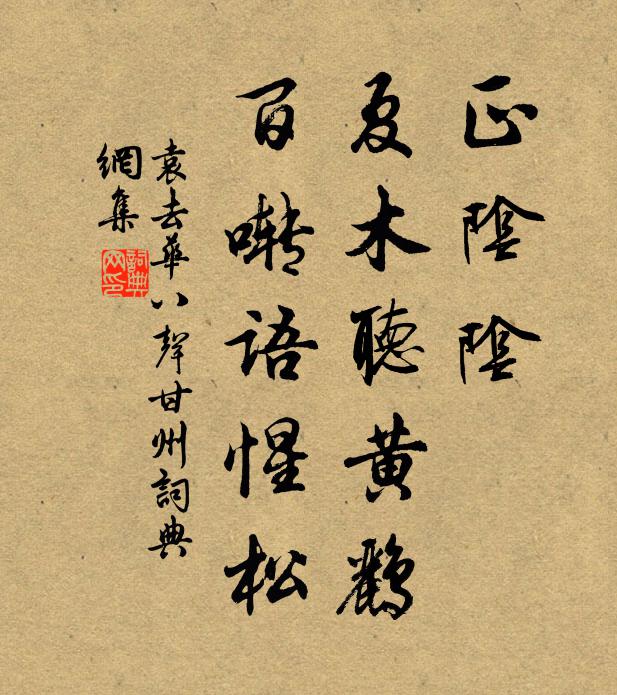 正陰陰
夏木聽黃鸝
百囀語惺松
袁去華八聲甘州詞典
網集
詞典網印